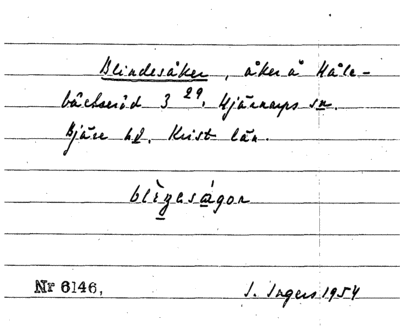 Blindesåker, åker å Håle-
bäckseröd 3 29. Hjärnarps sn.
Bjäre hd. Krist län.
blịgasägon
Nr 6146, I. Ingers 1954